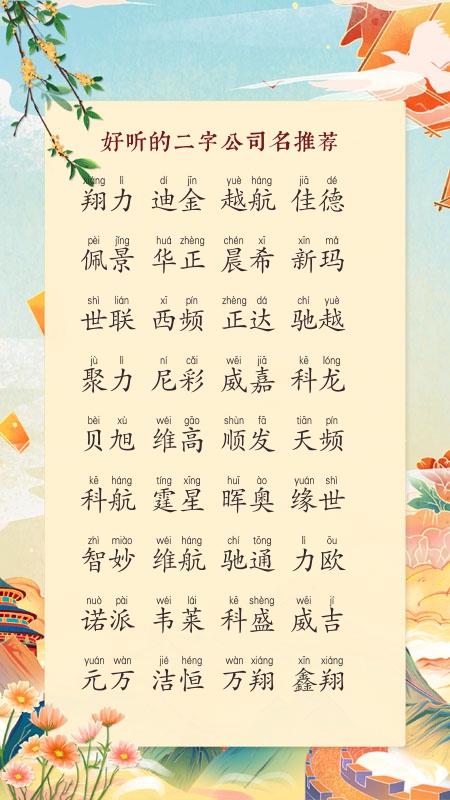 好听的二字公司名推荐
xiáng lì dí jīn yuè háng jiā dé
翔力 迪金 越航 佳德
pèi jǐng huá zhèng chén xī xīn mǎ
佩景 华正 晨希 新玛
shì lián xī pín zhèng dá chí yuè
世联 西频 正达 驰越
jù lì ní cǎi wēi jiā kē lóng
聚力 尼彩 威嘉 科龙
bèi xù wéi gāo shùn fā tiān pín
贝旭 维高 顺发 天频
kē háng tíng xīng huī ào yuán shì
科航 霆星 晖奥 缘世
zhì miào wéi háng chí tōng lì ōu
智妙 维航 驰通 力欧
nuò pài wéi lái kē shèng wēi jí
诺派 韦莱 科盛 威吉
yuán wàn jié héng wàn xiáng xīn xiáng
元万 洁恒 万翔 鑫翔